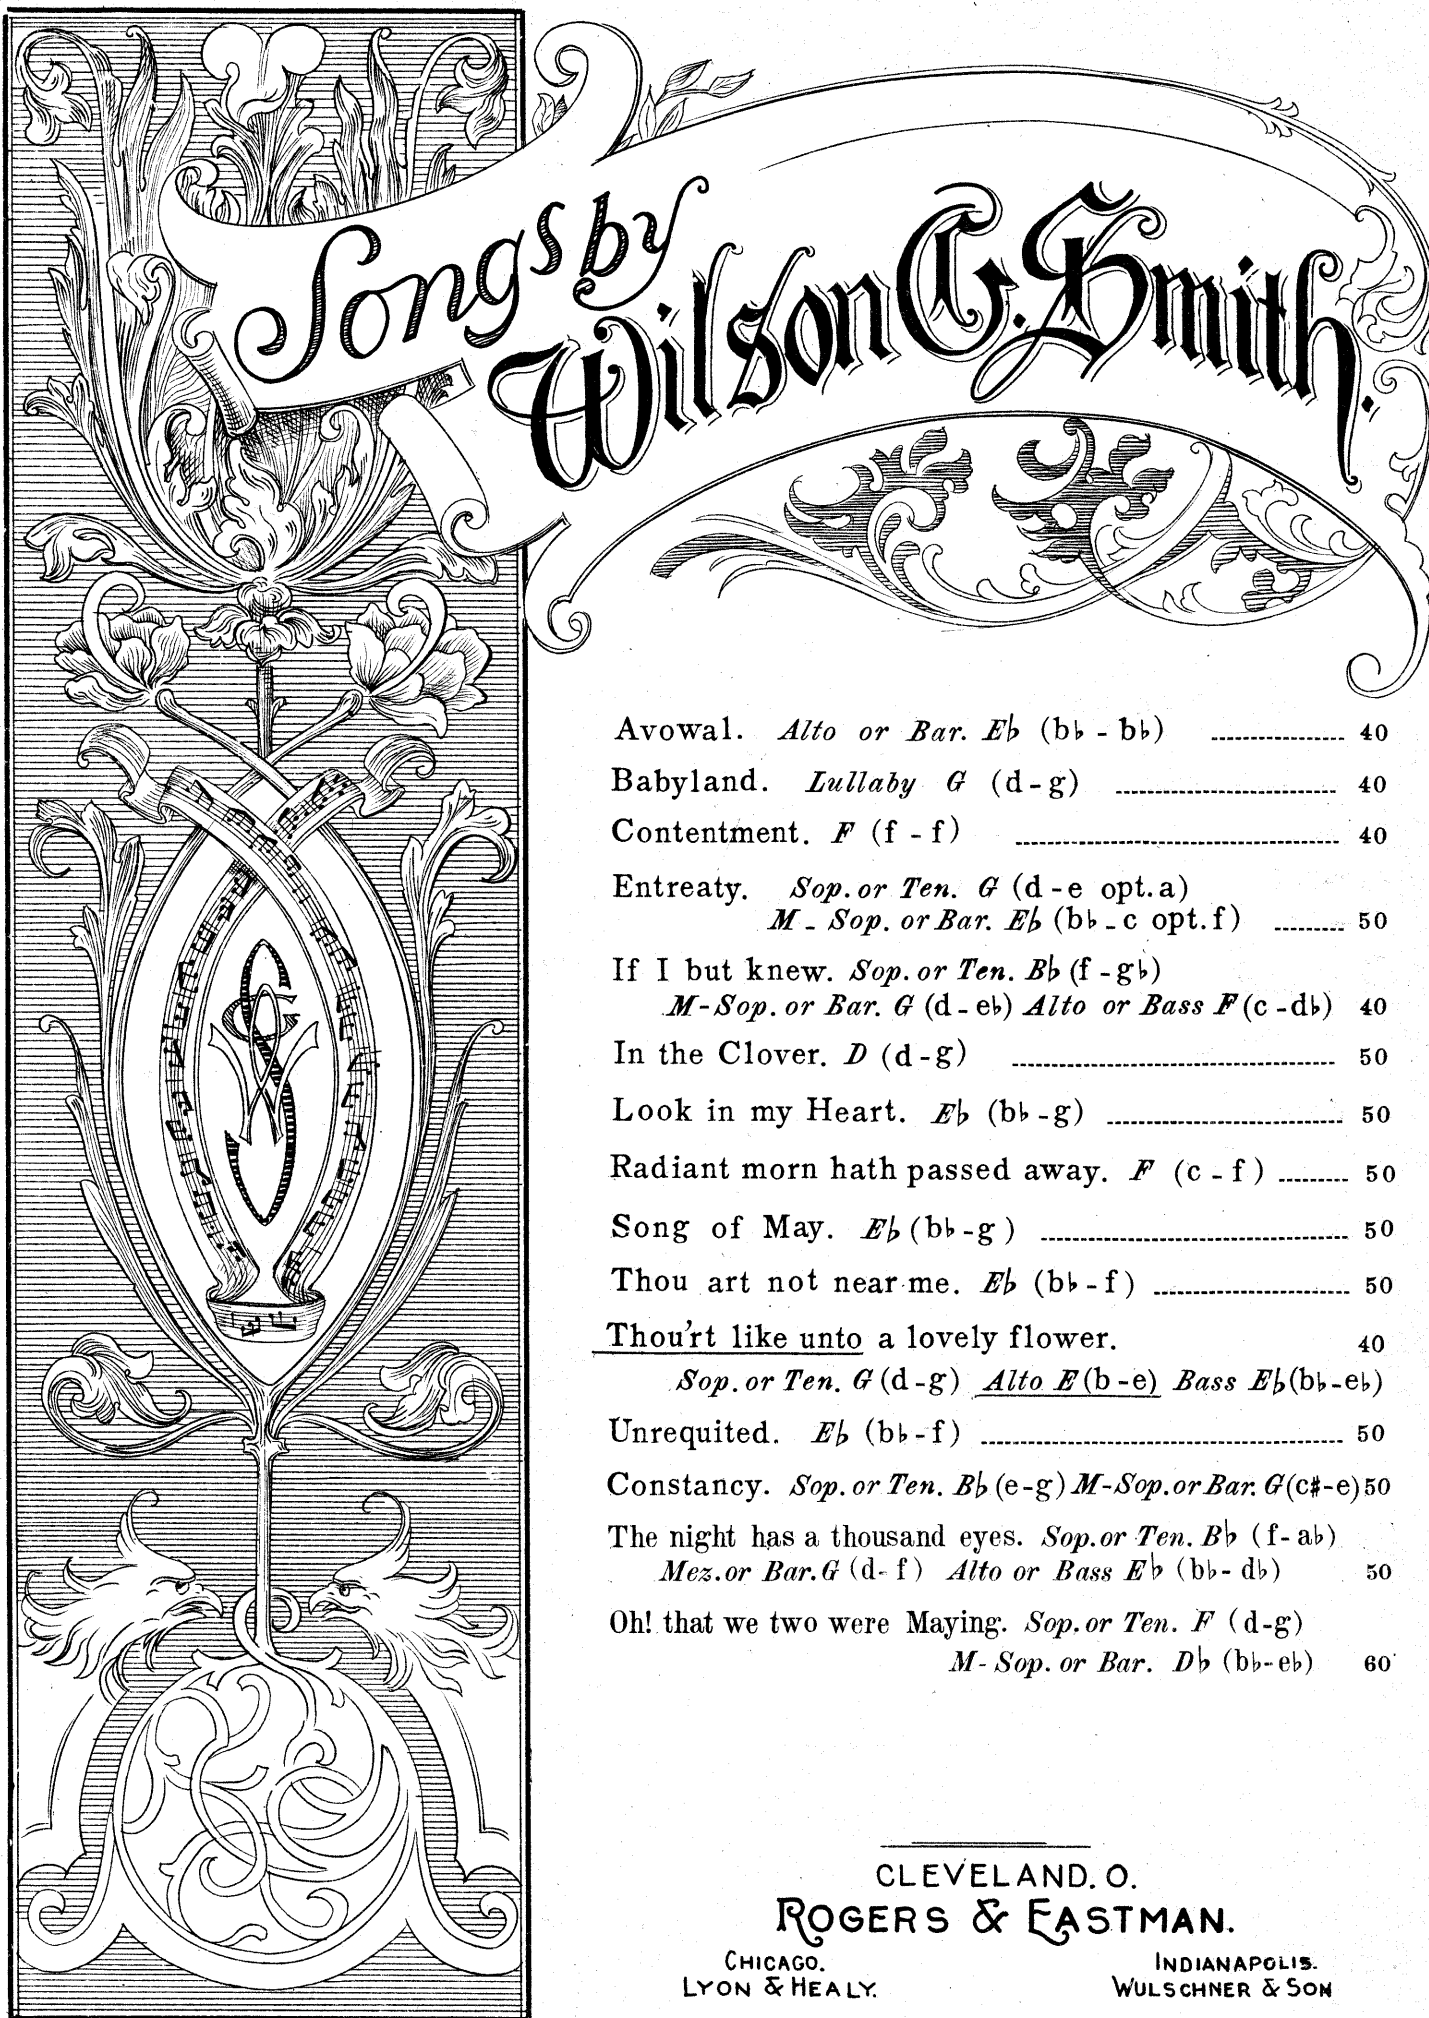 Songs by
Wilson G. Smith.
Avowal. Alto or Bar. E♭ (b♭ - b♭) ................. 40
Babyland. Lullaby G (d-g) ............................ 40
Contentment. F (f - f) ......................................... 40
Entreaty. Sop. or Ten. G (d - e opt. a)
M - Sop. or Bar. E♭ (b♭ - c opt. f) ......... 50
If I but knew. Sop. or Ten. B♭ (f - g♭)
M-Sop. or Bar. G (d - e♭) Alto or Bass F (c - d♭) 40
In the Clover. D (d-g) ......................................... 50
Look in my Heart. E♭ (b♭ - g) .............................. 50
Radiant morn hath passed away. F (c - f) ......... 50
Song of May. E♭ (b♭ - g) ....................................... 50
Thou art not near me. E♭ (b♭ - f) ......................... 50
Thou'rt like unto a lovely flower. 40
Sop. or Ten. G (d-g) Alto E (b-e) Bass E♭ (b♭-e♭)
Unrequited. E♭ (b♭ - f) .............................................. 50
Constancy. Sop. or Ten. B♭ (e-g) M-Sop. or Bar. G (c♯-e) 50
The night has a thousand eyes. Sop. or Ten. B♭ (f - a♭)
Mez. or Bar. G (d- f) Alto or Bass E♭ (b♭- d♭) 50
Oh! that we two were Maying. Sop. or Ten. F (d-g)
M- Sop. or Bar. D♭ (b♭- e♭) 60
CLEVELAND. O.
ROGERS & EASTMAN.
CHICAGO. INDIANAPOLIS.
LYON & HEALY. WULSCHNER & SON